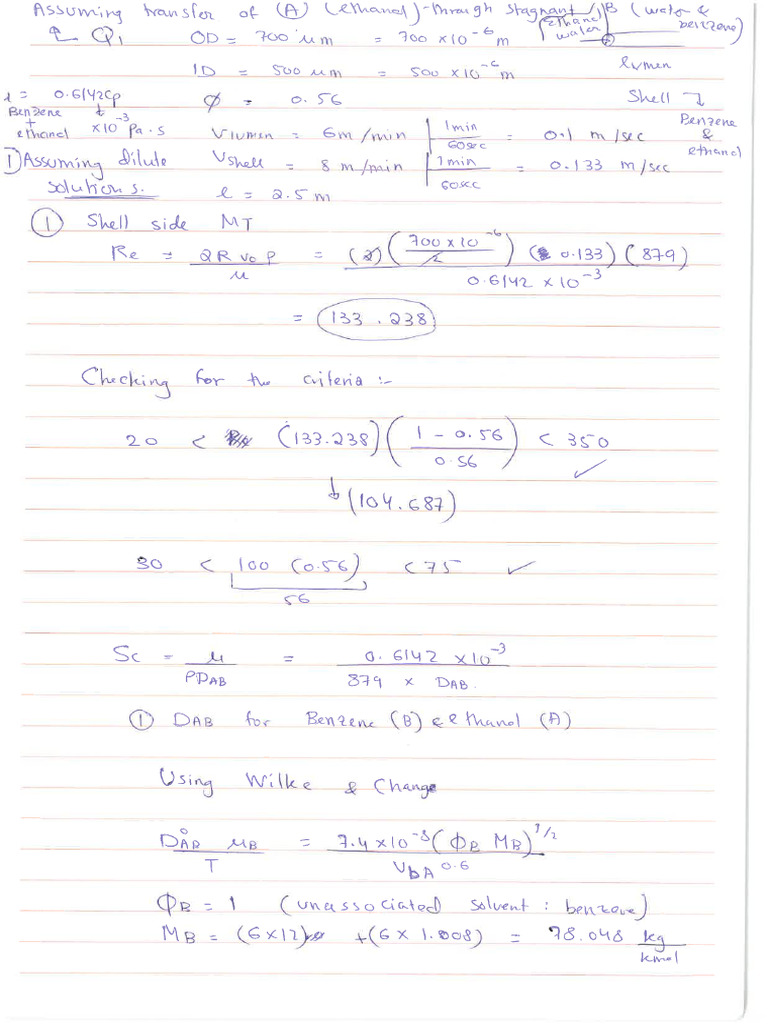 Assuming transfer of (A) (ethanol) - through stagnant B (water & benzene)
Q1 OD = 700 um = 700 × 10^-6 m
ethanol water
lumen
ID = 500 um = 500 × 10^-6 m
Shell → Benzene & ethanol
μ = 0.6142 cp
Benzene + ethanol × 10^-3 Pa.s
φ = 0.56
Vlumen = 6 m/min | 1 min / 60 sec = 0.1 m/sec
① Assuming dilute solutions.
Vshell = 8 m/min | 1 min / 60 sec = 0.133 m/sec
l = 2.5 m
① Shell side MT
Re = 2R vo ρ / μ = (2) (700 × 10^-6 / 2) (0.133) (879) / 0.6142 × 10^-3
= 133.238
Checking for the criteria :-
20 < (133.238) (1 - 0.56 / 0.56) < 350 ✓
↓ (104.687)
30 < 100 (0.56) < 75 ✓
56
Sc = μ / ρDAB = 0.6142 × 10^-3 / 879 × DAB.
① DAB for Benzene (B) & ethanol (A)
Using Wilke & Change
D°AB μB / T = 7.4 × 10^-8 (ΦB MB)^1/2 / VbA^0.6
ΦB = 1 (unassociated solvent : benzene)
MB = (6×12) + (6 × 1.008) = 78.048 kg/kmol